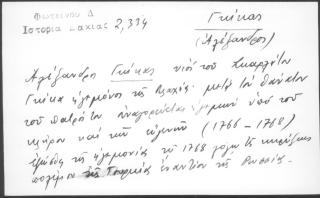 Φωτεινού Δ
Ιστορία Δακίας 2,334
Γκίκας
(Αλέξανδρος)
Αλέξανδρος Γκίκας υιός του Σκαρλάτου
Γκίκα ηγεμόνος της Βλαχίας μετά τον θάνατον
του πατρός του αναγορεύεται ηγεμών υπό του
κλήρου και της ευγενείας (1766-1768)
εξώσθη της ηγεμονίας το 1768 κηρύξεως
πολέμου της Τουρκίας εναντίον της Ρωσσίας.